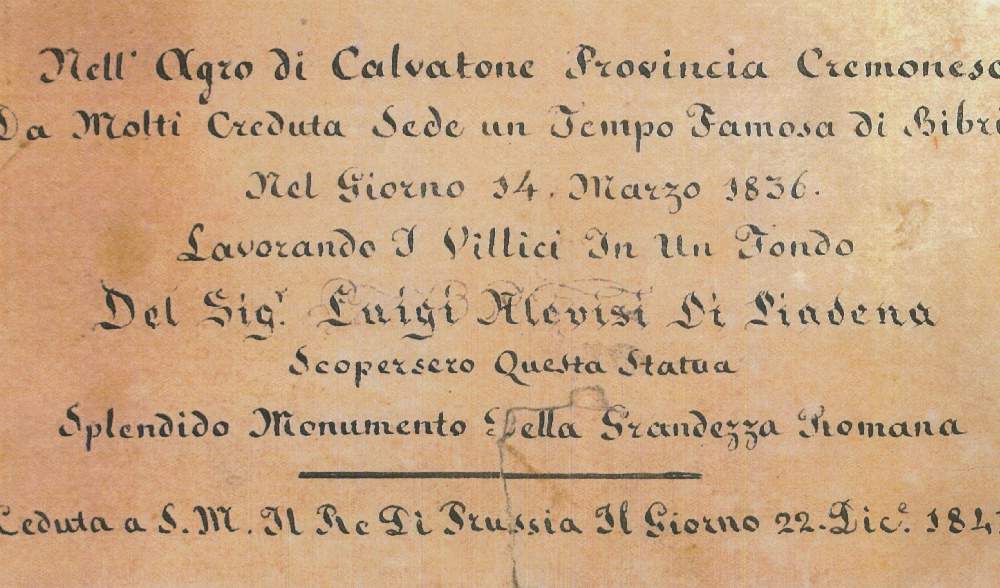 Nell' Agro di Calvatone Provincia Cremonese
Da Molti Creduta Sede un Tempo Famosa di
Nel Giorno 14. Marzo 1836.
Lavorando I Villici In Un Fondo
Del Sig.r Luigi Alovisi Di Piadena
Scopersero Questa Statua
Splendido Monumento Della Grandezza Romana
Ceduta a S. M. Il Re Di Prussia Il Giorno 22. Dic.e